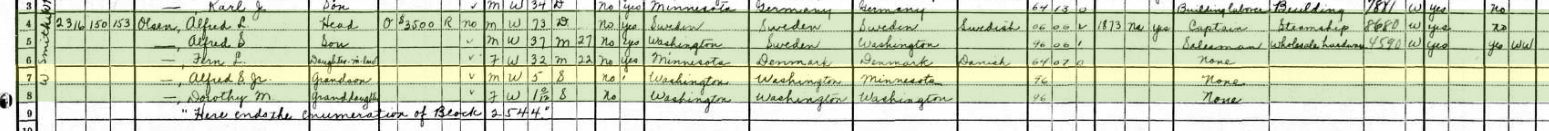 3 — Karl J. Son ✓ M W 34 D No Yes Minnesota Germany Germany 64 13 0 Building laborer Building 7881 W yes no
4 2316 150 153 Olsen, Alfred L. Head O $3500 R no M W 73 D No Yes Sweden Sweden Sweden Swedish 06 06 V 1873 Na yes Captain Steamship 8680 W yes no
5 —, Alfred S Son ✓ M W 37 M 27 No Yes Washington Sweden Washington 96 06 1 Salesman Wholesale hardware 4590 W yes yes WW
6 —, Fern L. Daughter-in-law ✓ F W 32 M 22 No Yes Minnesota Denmark Denmark Danish 64 07 0 None
7 —, Alfred S Jr. Grandson ✓ M W 5 S no Washington Washington Minnesota 96 None
8 —, Dorothy M. Granddaughter ✓ F W S no Washington Washington Washington 96 None
9 "Here ends the enumeration of Block 2544"